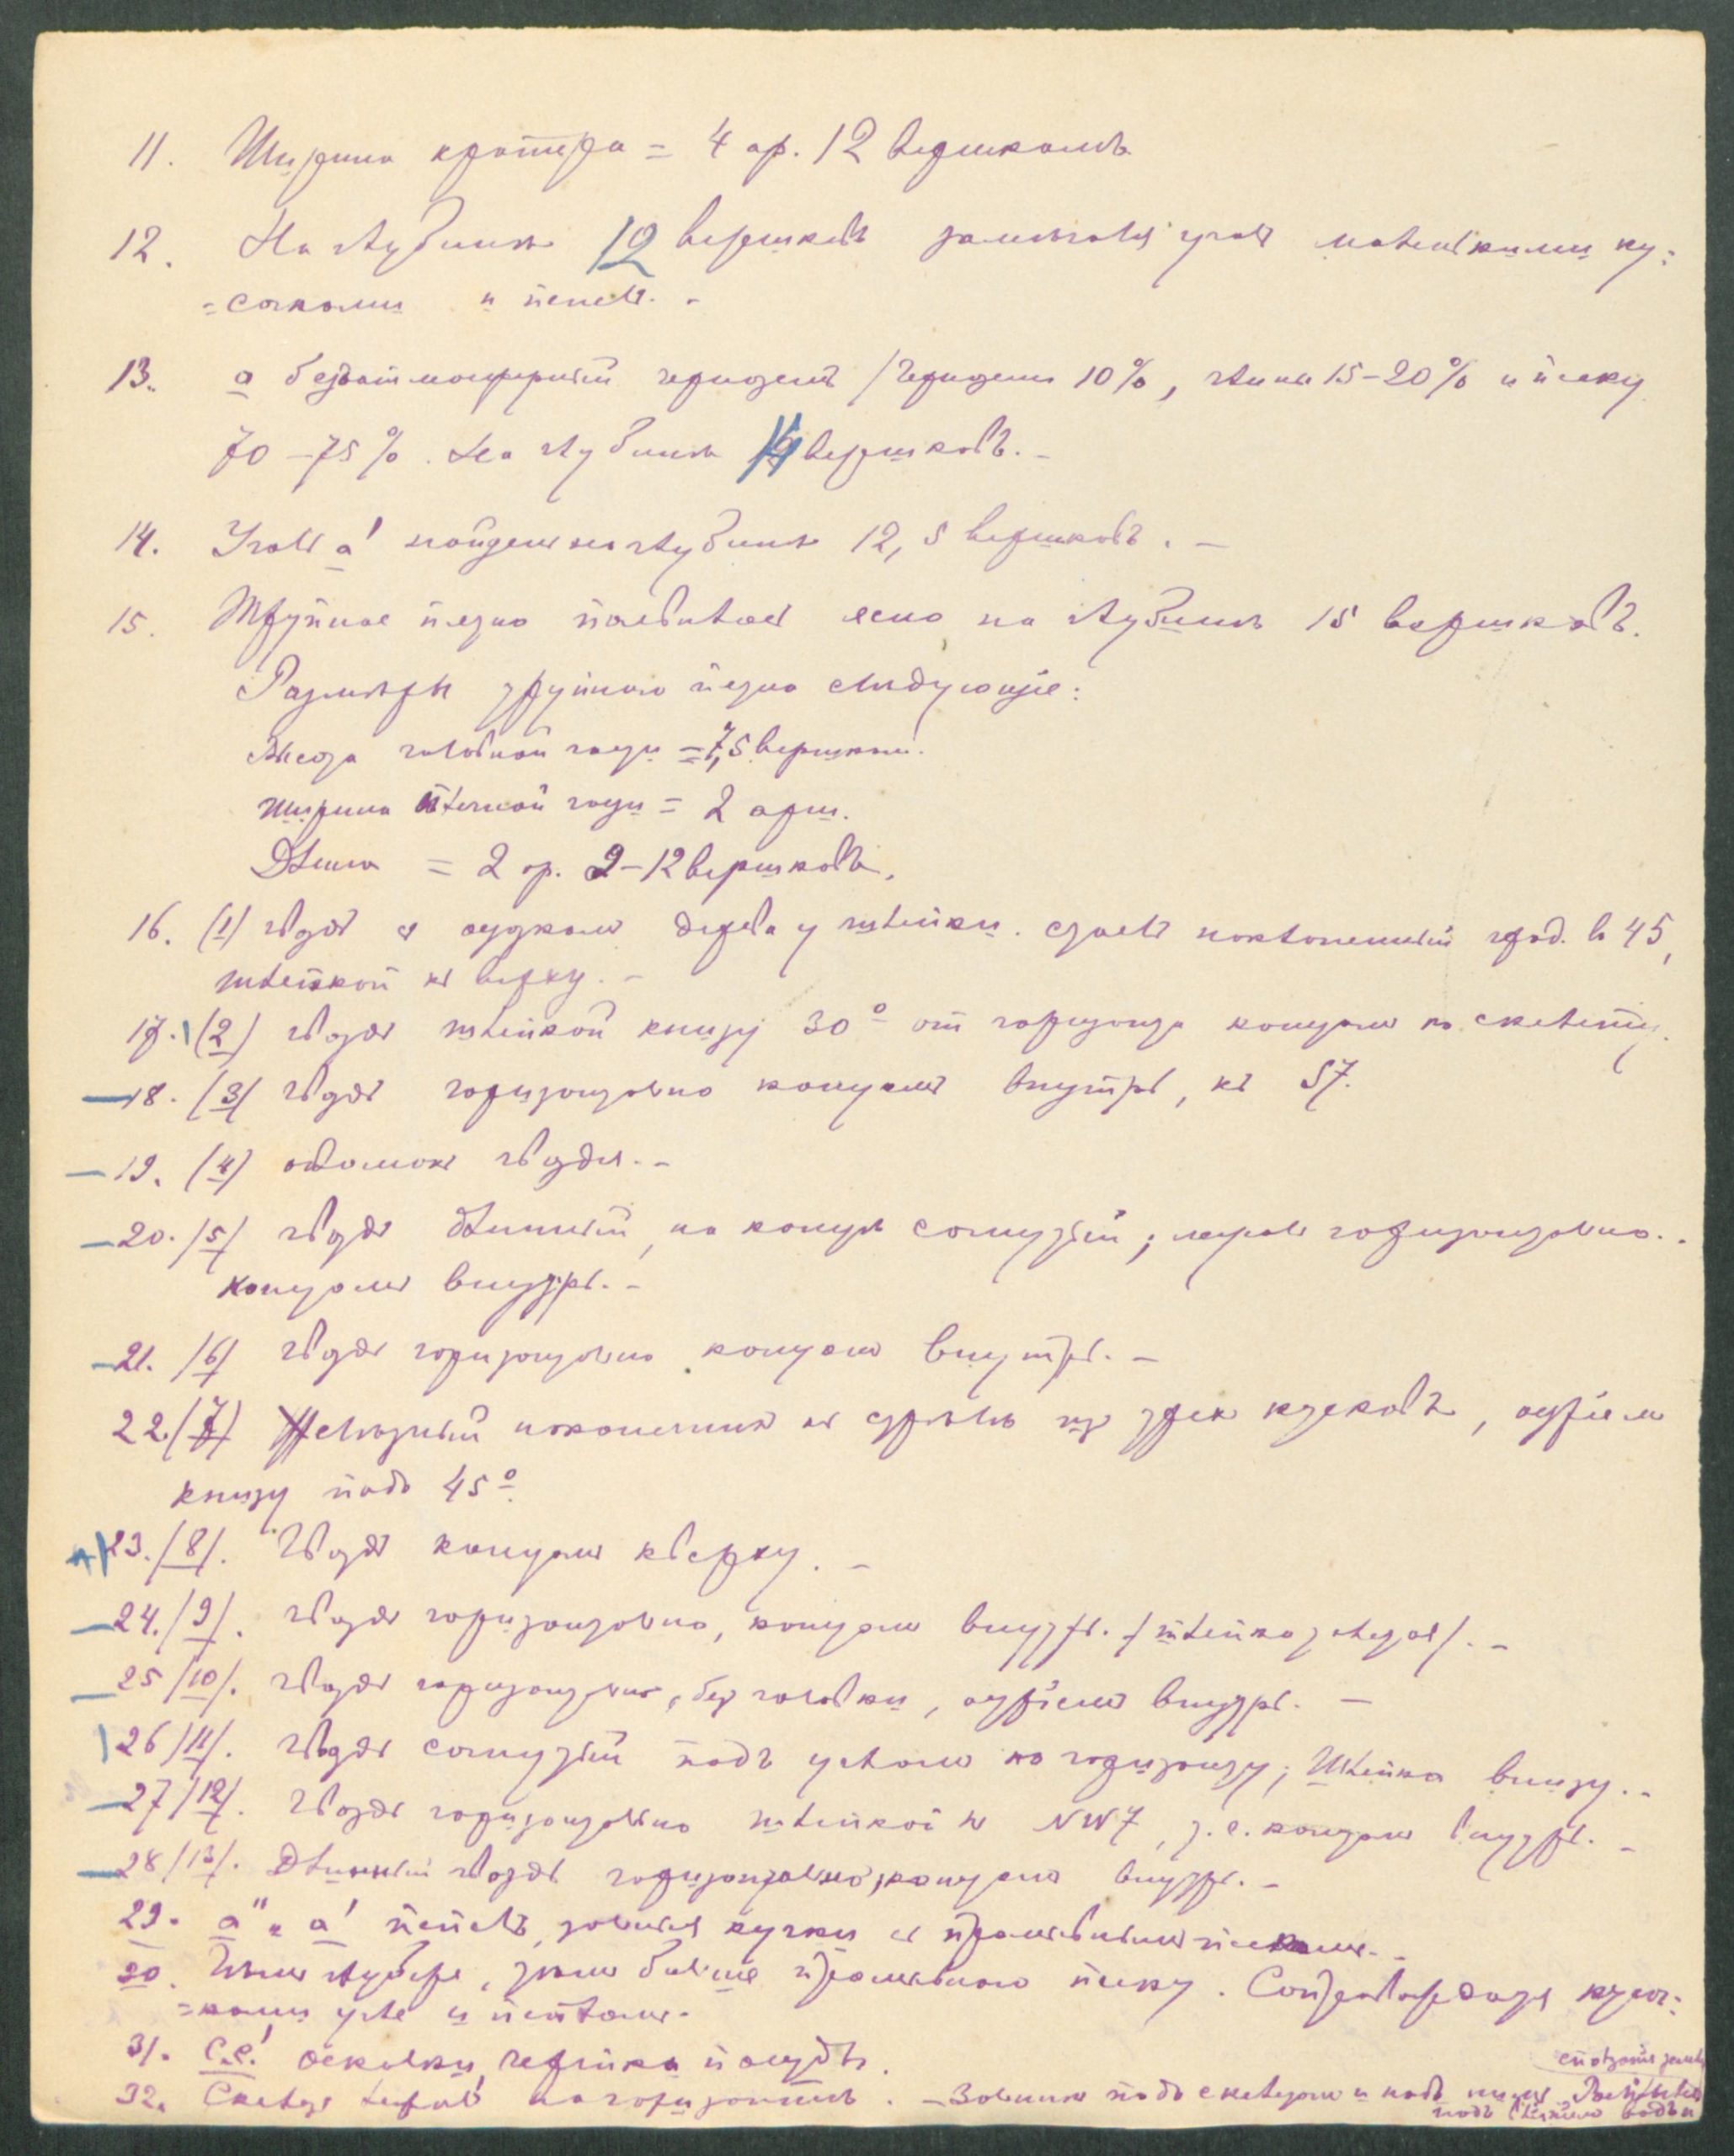 11. Ширина кратера = 4 ар. 12 вершкамъ
12. На глубинѣ 12 вершковъ замѣчался уголь маленькими ку=
=сочками и пепелъ. -
13. а черноземъ / Чернозем 10%, глины 15-20% и песку
70-75%. На глубинѣ вершковъ. -
14. Уголь а' найден на глубинѣ 12,5 вершковъ. -
15. Трупное пятно появилось ясно на глубинѣ 15 вершковъ.
Размѣры трупного пятна слѣдующіе:
головной части = 7,5 вершкам.
Ширина плечной части = 2 арш.
Длина = 2 ар. 9-12 вершковъ.
16. (1) гвоздь с куском дерева у шляпки. стоялъ наклоненный град. в 45,
шляпкой к верху. -
17. (2) гвоздь шляпкой книзу 30° от горизонта концом к скелету.
18. (3) гвоздь горизонтально концомъ внутрь, къ S7.
19. (4) обломокъ гвоздя. -
20. /5/ гвоздь длинный, на концѣ согнутый; лежалъ горизонтально. -
концомъ внутрь. -
21. /6/ гвоздь горизонтально концом внутрь. -
22. (7) Желѣзный наконечник от стрѣлы из трех кусковъ, остріем
книзу подъ 45°.
23. /8/. Гвоздь концомъ кверху. -
24. /9/. гвоздь горизонтально, концом внутрь. /шляпка /. -
25 /10/. гвоздь горизонтально, без головки, остріемъ внутрь. -
26 /11/. гвоздь согнутый подъ углом к горизонту; Шляпка внизу. -
27 /12/. Гвоздь горизонтально шляпкой к NW7, т.е. концом внутрь. -
28 /13/. Длинный гвоздь горизонтально, концом внутрь. -
29. а" и а' пепелъ, золистыя кучки съ песком. -
30. Чѣм глубже, тѣм больше песку. кусоч=
=ками угля и пепломъ. -
31. С.С.' осколки, черепка посуды.
32. Скелет лежалъ на горизонтѣ. - Зольник подъ скелетом и подъ
подъ